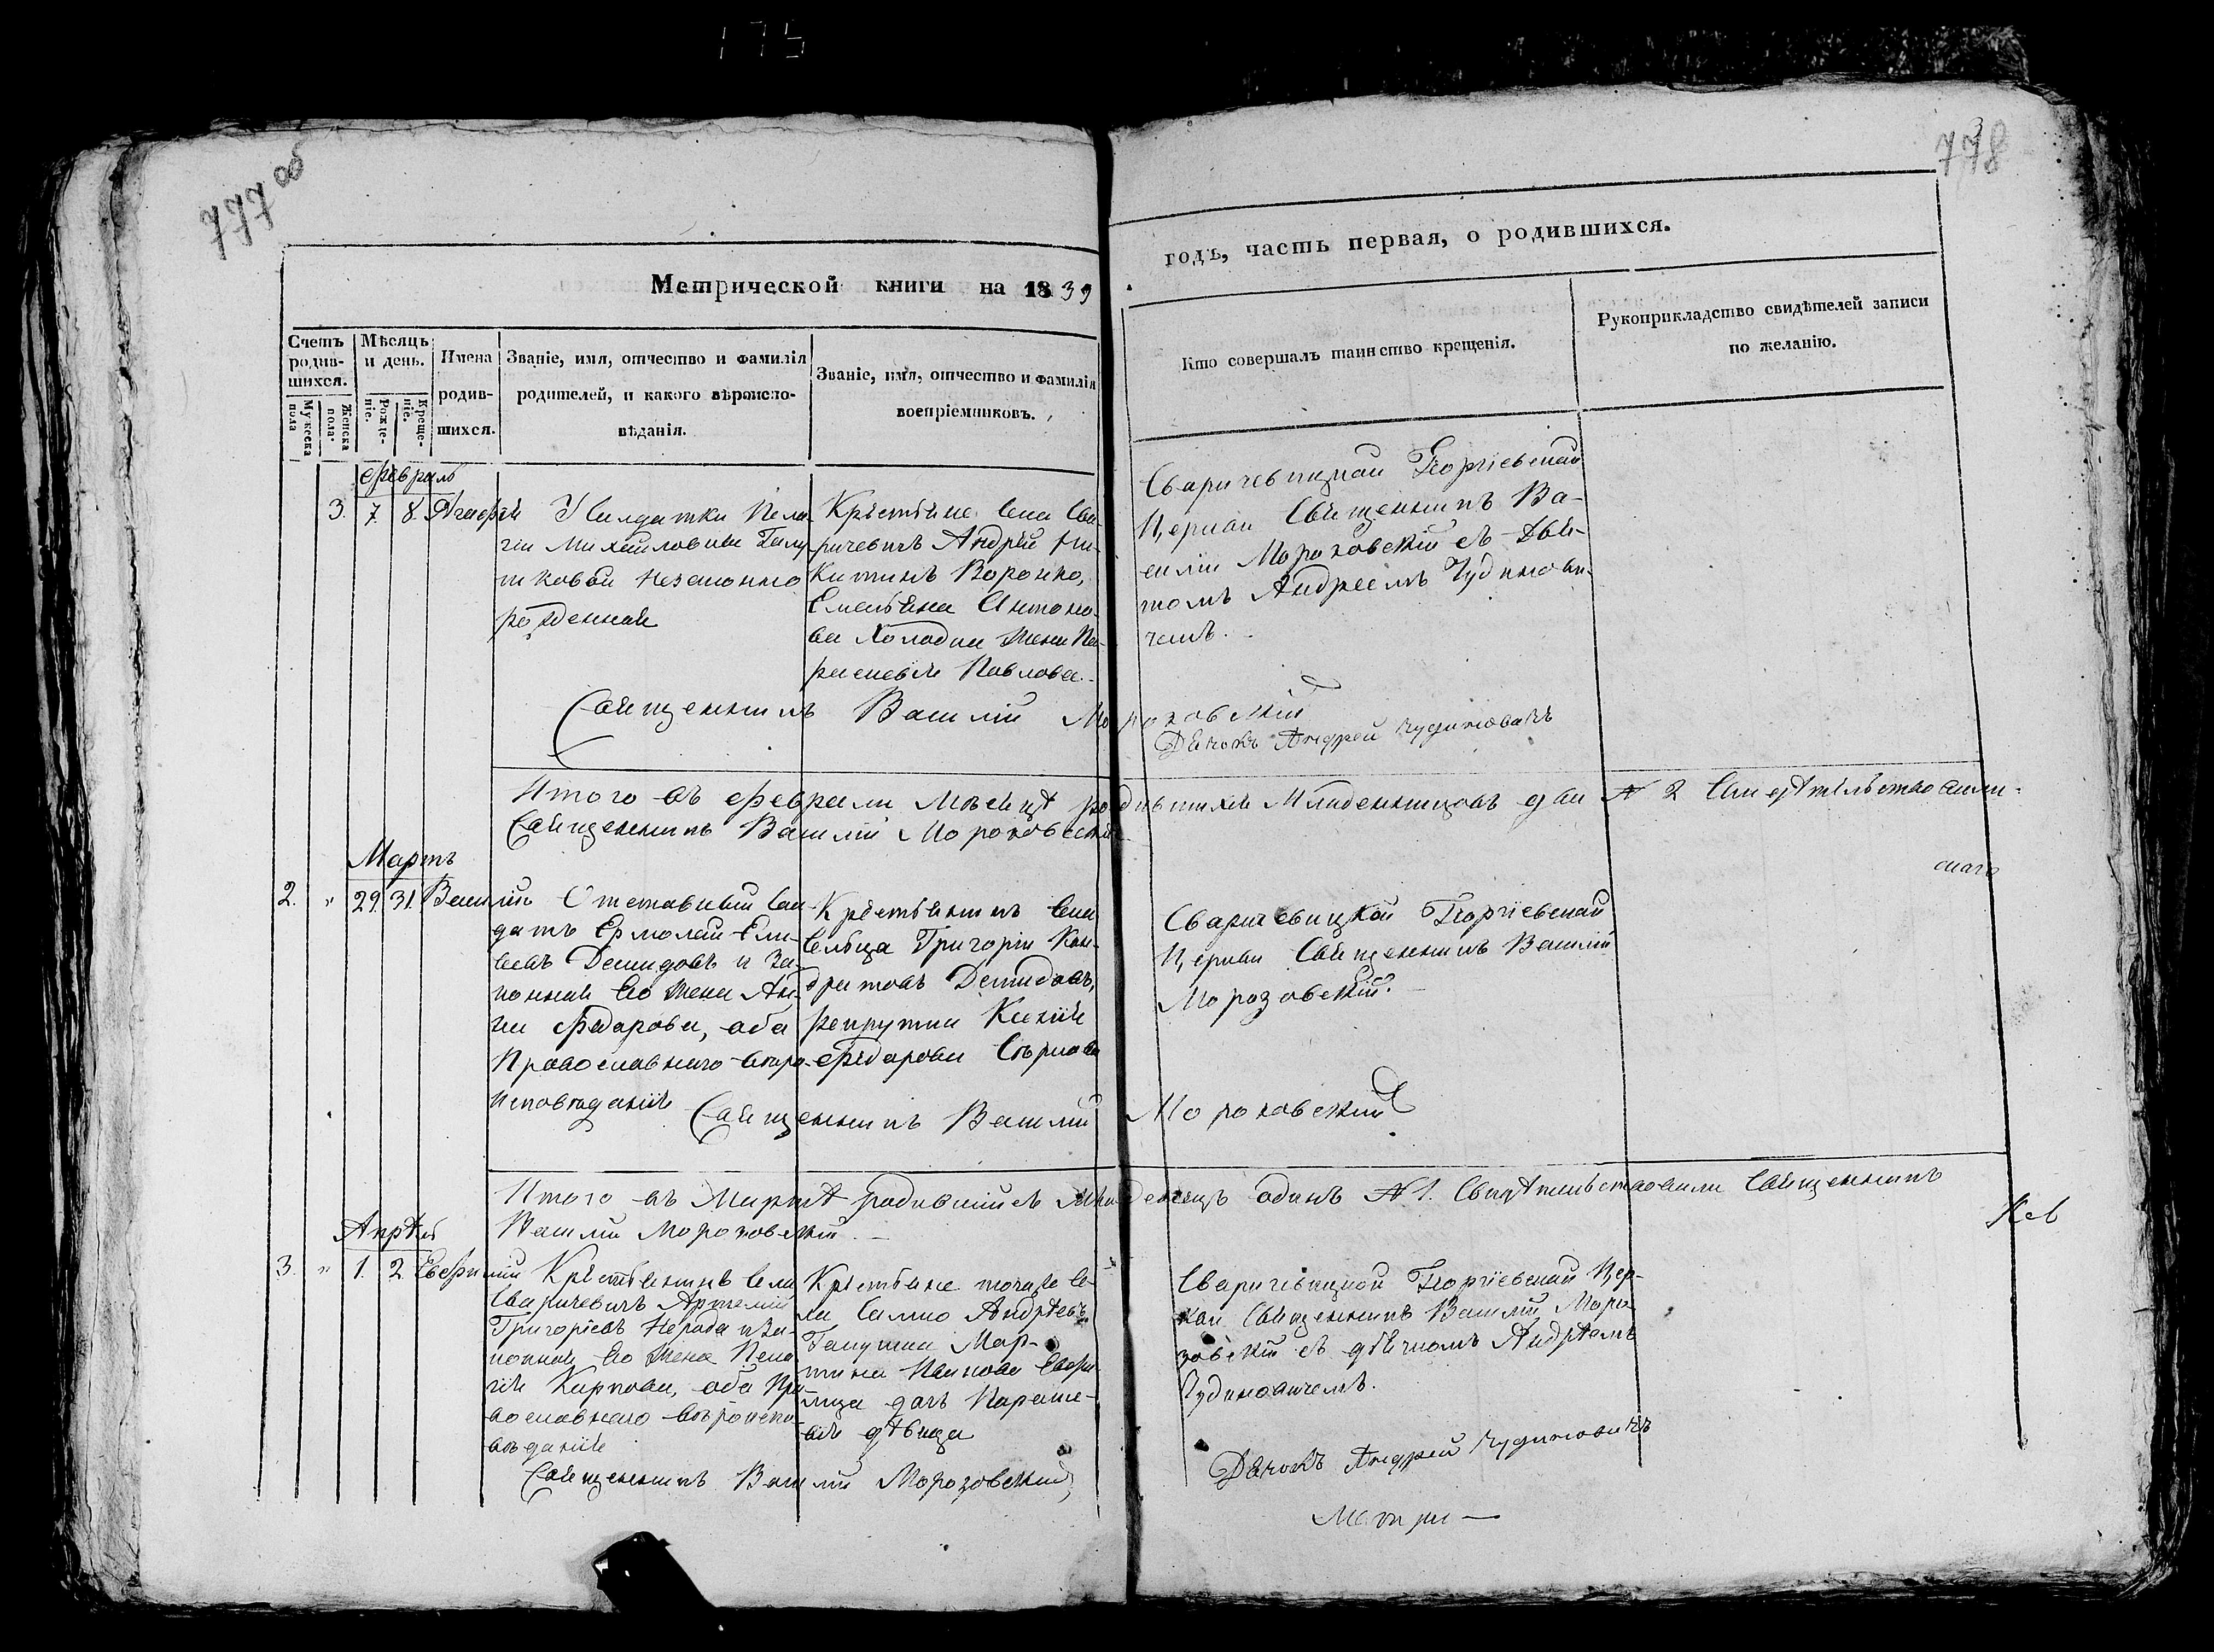 175
777 об
778
Метрической книги на 1839
годъ, часть первая, о родившихся.
Счетъ родив-шихся.
Мужеска пола
Женска пола
Мѣсяцъ и день.
Рожде-ніе.
Креще-ніе.
Имена родив-шихся.
Званіе, имя, отчество и фамилія
родителей, и какого вѣроиспо-
вѣданія.
Званіе, имя, отчество и фамилія
воспріемниковъ.
Кто совершалъ таинство крещенія.
Рукоприкладство свидѣтелей записи
по желанію.
Февраль
3. 7. 8. Агафія
У Солдатки Пела-
гіи Михайловны Галу-
шковой незаконно
рожденная
Крестьяне села Сва-
ричевичъ Андрей Ни-
китинъ Воронко,
Емельяна Антоно-
ва Холодна жена Па-
расковія Павлова.
Сваричевицкой Георгіевской
Церкви Священникъ Ва-
силій Морозовскій съ Дья-
комъ Андреемъ Чудинови-
чемъ.
Священникъ Василій Морозовскій
Дьячокъ Андрей Чудиновичъ
Итого въ Феврали Мѣсяцѣ родившихся Младенцовъ два № 2 Свидѣтельствовали
Священникъ Василій Морозовскій
Мартъ
2. " 29. 31. Василій
Отставный Сол-
датъ Ермолай Ели-
сеевъ Демидовъ и за-
конная Его жена Ан-
на Федорова, оба
Православнаго вѣро-
исповѣданія
Крестьянинъ села
Сельца Григорій Кон-
дратовъ Демидовъ,
рекрутка Ксенія
Федорова
Сваричевицкой Георгіевской
Церкви Священникъ Василій
Морозовскій.
Священникъ Василій Морозовскій
Итого въ Мартѣ родившійся Младенецъ одинъ № 1. Свидѣтельствовали Священникъ
Василій Морозовскій.
Апрѣль
3. " 1. 2.
Крестьянинъ села
Сваричевичъ Артемій
Григоріевъ Нерода и за-
конная Его жена Пела-
гія Карпова, оба Пра-
вославнаго вѣроиспо-
вѣданія
Крестьяне тогожъ се-
ла Андрѣевъ
Галушка Мар-
тина
дочь Параске-
вія дѣвица
Сваричевицкой Георгіевской Цер-
кви Священникъ Василій Моро-
зовскій съ дьячкомъ Андрѣемъ
Чудиновичемъ.
Священникъ Василій Морозовскій
Дьячокъ Андрей Чудиновичъ
Метри—